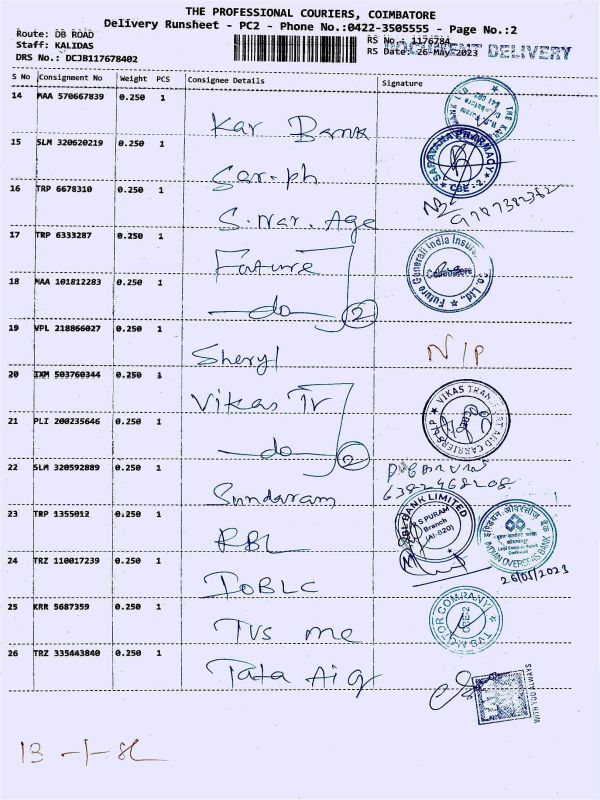 THE PROFESSIONAL COURIERS, COIMBATORE
Delivery Runsheet - PC2 - Phone No.:0422-3505555 - Page No.:2
Route: DB ROAD
RS No.: 1176784
Staff: KALIDAS
RS Date: 26-May-2023
DOCUMENT DELIVERY
DRS No.: DCJB117678402
S No Consignment No Weight PCS Consignee Details Signature
14 MAA 570667839 0.250 1
Kar Bank
15 SLM 320620219 0.250 1
Sar.ph
SARAVANA PHARMACY
CBE - 2
16 TRP 6678310 0.250 1
S. Nar. Age
17 TRP 6333287 0.250 1
Future
Future Generali India Insurance Co. Ltd.,
Coimbatore
18 MAA 101812283 0.250 1
do 2
19 VPL 218866027 0.250 1
Sheryl
N/P
20 IXM 503760344 0.250 1
Vikas Tr
VIKAS TRANSPORT AND CARRIERS LLP
21 PLI 200235646 0.250 1
do 2
22 SLM 320592889 0.250 1
Sundaram
6382968208
23 TRP 1355012 0.250 1
RBL
RBL BANK LIMITED
R S PURAM
Branch
(AI-820)
24 TRZ 110017239 0.250 1
IOBLC
इण्डियन ओवरसीज़ बैंक
INDIAN OVERSEAS BANK
26/05/2023
25 KRR 5687359 0.250 1
TVS mc
TVS MOTOR COMPANY
CBE-2
26 TRZ 335443840 0.250 1
Tata Aig
WITH YOU ALWAYS
13 -1-